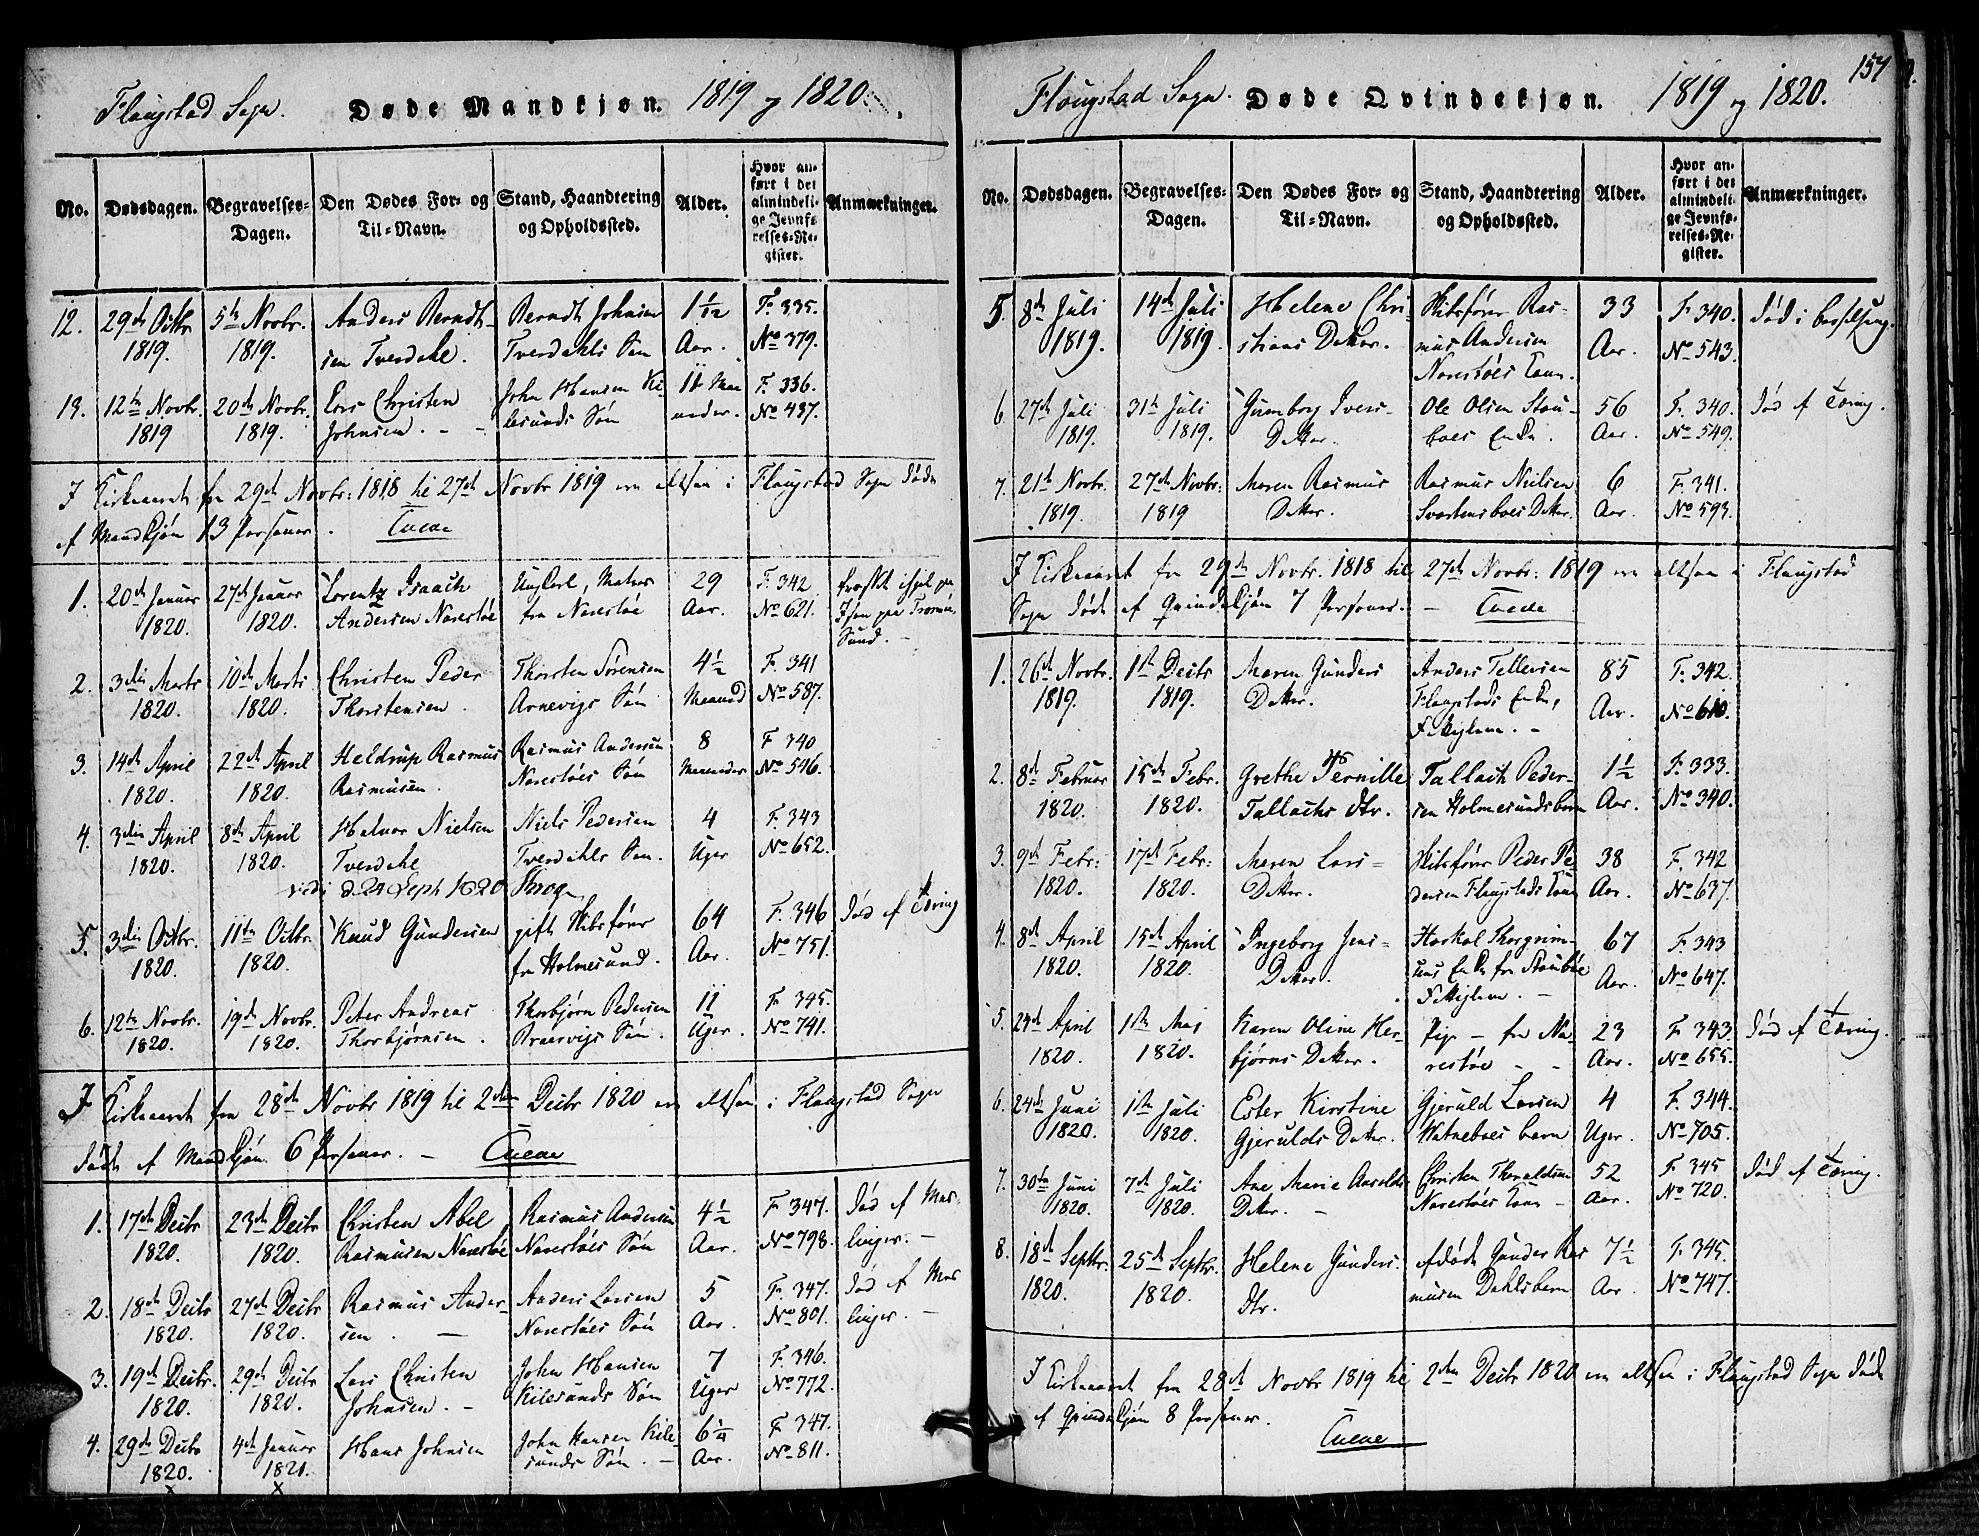 Flaugstad Sogn. Døde Mandkjøn. 1819 og 1820.
No. Dødsdagen. Begravelses-Dagen. Den Dødes For- og Til-Navn. Stand, Haandtering og Opholdssted. Alder. Hvor anført i det almindelige Jevnførelses-Register. Anmærkninger.
12. 29de Octbr 1819. 5te Novbr. 1819. Anders Berndtsen Tverdahl. Berndt Johnsen Tverdahls Søn 1 1/12 Aar. F. 335. No 379.
13. 12te Novbr. 1819 20de Novbr. 1819. Lars Christen Johnsen. John Hansen Kilesunds Søn 11 Maaneder. F. 336. No 437.
I Kirkeaaret fra 29de Novbr: 1818 til 27de Novbr 1819 ere altsaa i Flaugstad Sogn døde
af Mandkjøn 13 Personer.
1. 20de Januar 1820. 27de Januar 1820. Lorentz Isaach Andersen Narestøe Ungkarl, Matros fra Narestøe 29 Aar. F. 342 No 621. Sund.
2. 3die Marts 1820. 10de Marts 1820. Christen Peder Thorstensen. Thorsten Sørensen Arnevigs Søn 4 1/2 Maaned F. 341 No 587.
3. 14de April 1820. 22de April 1820. Heldrup Rasmus Rasmusen. Rasmus Andersen Narestøes Søn 8 Maaneder F 340 No 546.
4. 3die April 1820. 8de April 1820. Halvor Nielsen Tverdahl Niels Pedersen Tverdahls Søn. 4 Uger F. 343 No 652.
vidi d. 24 Septb 1820
5. 3die Octbr. 1820. 11te Octbr. 1820. Knud Gundersen gift Skibsfører fra Holmesund. 64 Aar. F. 346 No 751. død af Tæring
6. 12te Novbr. 1820. 19de Novbr. 1820. Peter Andreas Thorbjørnsen. Thorbjørn Pedersen Braervigs Søn. 11 Uger. F. 345. No 741.
I Kirkeaaret fra 28de Novbr 1819 til 2den Decbr 1820 ere altsaa i Flaugstad Sogn
døde af Mandkjøn 6 Personer. –
1. 17de Decbr 1820. 23de Decbr 1820. Christen Abel Rasmusen Narestøe Rasmus Andersen Narestøes Søn 4 1/2 Aar. F. 347. No 798. død af Meslinger. –
2. 18de Decbr 1820. 27de Decbr 1820. Rasmus Andersen. – Anders Larsen Narestøes Søn 5 Aar. F. 347. No 801. død af Meslinger. –
3. 19de Decbr. 1820. 29de Decbr 1820. Lars Christen Johnsen. – John Hansen Kilesunds Søn 7 Uger F. 346. No 772.
4. 29de Decbr 1820. 4de Januar 1821. Hans Johnsen John Hansen Kilesunds Søn. – 6 1/4 Aar. F 347. No 811.
157
Flougstad Sogn. Døde Qvindekjøn. 1819 og 1820.
No. Dødsdagen. Begravelses-Dagen. Den Dødes For- og Til-Navn. Stand, Haandtering og Opholdssted. Alder. Hvor anført i det almindelige Jevnførelses-Register. Anmærkninger.
5. 8de Juli 1819. 14de Juli 1819. Helene Christians Datter. Skibsfører Rasmus Andersen Narestøes Kone. 33 Aar. F. 340. No 543. død i barselseng.
6. 27de Juli 1819. 31te Juli 1819. Gunnborg Ivers Datter. Ole Olsen Stouboes Enke. 56 Aar. F. 340. No 549. død af Tæring.
7. 21de Novbr. 1819. 27de Novbr: 1819 Maren Rasmus Datter. Rasmus Nielsen Svartensboes Datter. 6 Aar. F. 341. No 593.
I Kirkeaaret fra 29de Novbr. 1818 til 27de Novbr: 1819 ere altsaa i Flaugstad
Sogn døde af Qvindekjøn 7 Personer. –
1. 26de Novbr. 1819. 1ste Decbr 1819. Maren Gunders Datter. Anders Tellersen Flaugstads Enke, Fattiglem. – 85 Aar. F. 342. No 610.
2. 8de Februar 1820. 15de Febr. 1820. Grethe Pernille Tallachs Dtr. Tallach Pedersen Holmesunds barn 1 1/2 Aar. F. 333. No 340.
3. 9de Febr: 1820. 17de Febr: 1820. Maren Lars Datter. Skibsfører Peder Pedersen Flaugstads Kone 38 Aar. F. 342 No 637.
4. 8de April 1820. 15de April 1820. Ingeborg Jens Datter. Haskol Thorgrimsens Enke fra Stouboe Fattiglem. – 67 Aar. F. 343 No 647.
5. 24de April 1820. 1ste Mai 1820. Karen Oline Herbjørns Datter. Pige – fra Narestøe – 23 Aar. F. 343 No 655. død af Tæring.
6. 24de Juni 1820. 1ste Juli 1820. Ester Kirstine Gjerulds Datter. Gjeruld Larsen Watneboes barn 4 Uger. F. 344. No 705.
7. 30te Juni 1820. 7de Juli 1820. Ane Marie Aarolds Datter. – Christen Thoraldsen Narestøes Kone – 52 Aar. F. 345 No 720. død af Tæring.
8. 18de Septbr. 1820. 25de Septbr. 1820. Helene Gunders Dtr. Afdøde Gunder Rasmusen Dahls barn 7 1/2 Aar. F. 345. No 747.
I Kirkeaaret fra 28de Novbr 1819 til 2den Decbr 1820 ere altsaa i Flaugstad Sogn døde
af Qvindekjøn 8 Personer.